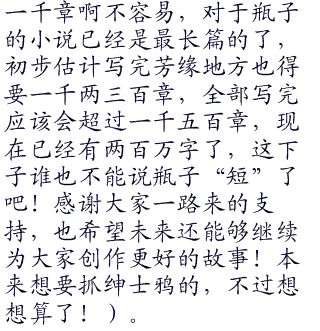 一千章啊不容易，对于瓶子
的小说已经是最长篇的了，
初步估计写完芳缘地方也得
要一千两三百章，全部写完
应该会超过一千五百章，现
在已经有两百万字了，这下
子谁也不能说瓶子“短”了
吧！感谢大家一路来的支
持，也希望未来还能够继续
为大家创作更好的故事！本
来想要抓绅士鸦的，不过想
想算了！）。